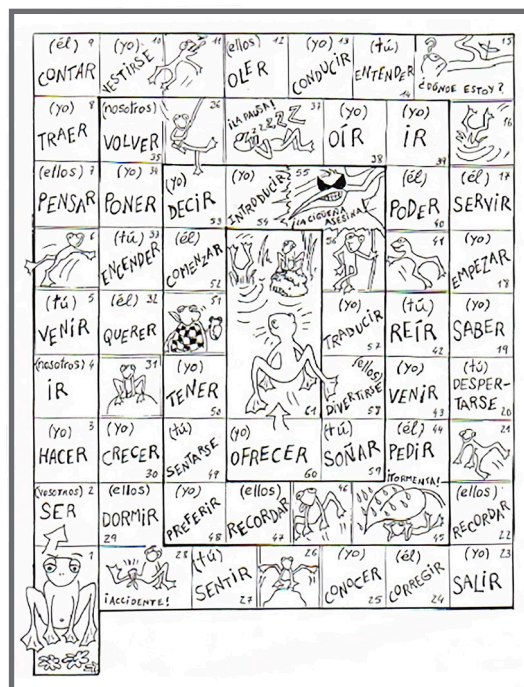 (él) 9
CONTAR
(yo) 10
VESTIRSE
11
(ellos) 12
OLER
(yo) 13
CONDUCIR
(tú)
ENTENDER
14
15
¿DÓNDE ESTOY?
(yo) 8
TRAER
(nosotros)
VOLVER
35
36
¡LA PAUSA! 37
ZZZZZZ
(yo)
OÍR
38
(yo)
IR
39
16
(ellos) 7
PENSAR
(yo) 34
PONER
(yo)
DECIR
53
(yo)
INTRODUCIR
54
55
¡LA CIGÜEÑA
ASESINA!
(él)
PODER
40
(él) 17
SERVIR
6
(tú) 33
ENCENDER
(él)
COMENZAR
52
56
41
(yo)
EMPEZAR
18
(tú) 5
VENIR
(él) 32
QUERER
51
(yo)
TRADUCIR
57
(tú)
REÍR
42
(yo)
SABER
19
(nosotros) 4
IR
31
(yo)
TENER
50
61
(ellos)
DIVERTIRSE
58
(yo)
VENIR
43
(tú)
DESPER-
TARSE
20
(yo) 3
HACER
(yo)
CRECER
30
(tú)
SENTARSE
49
(yo)
OFRECER
60
(tú)
SOÑAR
59
(él) 44
PEDIR
21
(vosotros) 2
SER
(ellos)
DORMIR
29
(yo)
PREFERIR
48
(ellos)
RECORDAR
47
46
¡TORMENSA!
45
(ellos)
RECORDAR
22
1
28
¡ACCIDENTE!
(tú)
SENTIR
27
26
(yo)
CONOCER
25
(él)
CORREGIR
24
(yo) 23
SALIR